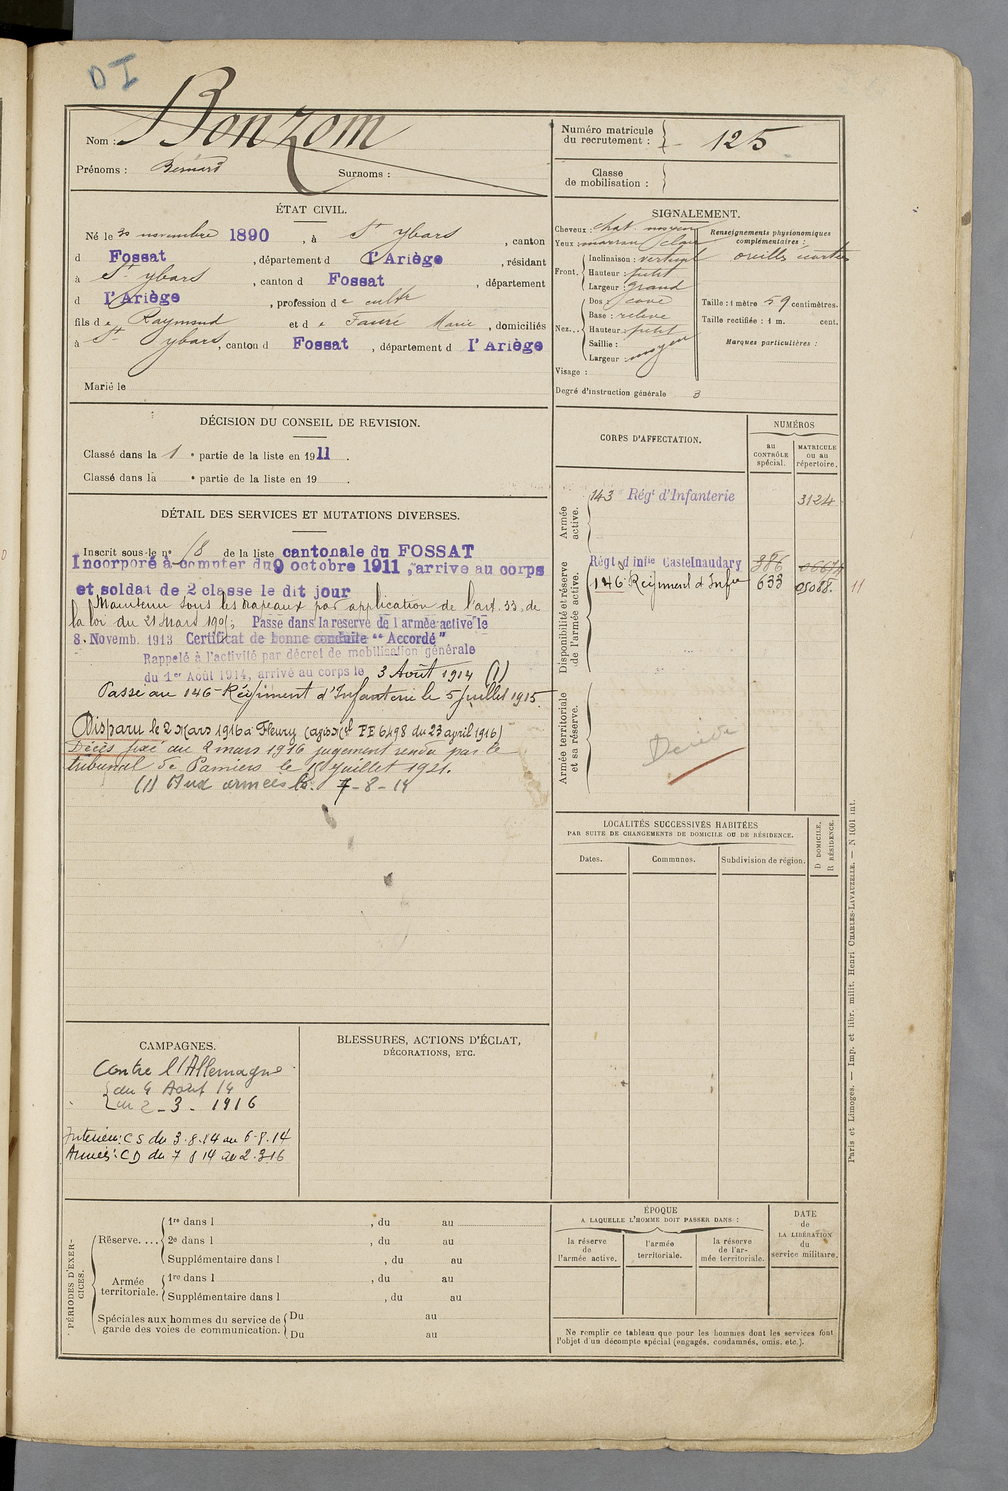 DI
Nom : Bonzom
Prénoms : Bernard Surnoms :
Numéro matricule du recrutement : 125
Classe de mobilisation :
ÉTAT CIVIL.
Né le 30 novembre 1890, à St Ybars, canton
d Fossat, département d l'Ariège, résidant
à St Ybars, canton d Fossat, département
d l'Ariège, profession de cultr
fils de Raymond et de Fauré Marie, domiciliés
à St Ybars, canton d Fossat, département d l'Ariège
Marié le
SIGNALEMENT.
Cheveux : chat. moyen
Yeux : marron clair
Front. Inclinaison : vertical
Hauteur : petit
Largeur : grand
Nez... Dos : cave
Base : relevé
Hauteur : petit
Saillie :
Largeur : moyen
Visage :
Degré d'instruction générale 3
Renseignements physionomiques complémentaires :
oreilles écartées
Taille : 1 mètre 59 centimètres.
Taille rectifiée : 1 m. cent.
Marques particulières :
DÉCISION DU CONSEIL DE REVISION.
Classé dans la 1e partie de la liste en 1911.
Classé dans la e partie de la liste en 19 .
DÉTAIL DES SERVICES ET MUTATIONS DIVERSES.
Inscrit sous le n° 18 de la liste cantonale du FOSSAT
Incorporé à compter du 9 octobre 1911, arrive au corps
et soldat de 2 classe le dit jour
Maintenu sous les drapeaux par application de l'art. 33 de
la loi du 21 Mars 1905; Passe dans la reserve de l'armée active le
8. Novemb. 1913 Certificat de bonne conduite "Accordé"
Rappelé à l'activité par décret de mobilisation générale
du 1er Août 1914, arrivé au corps le 3 Août 1914 (1)
Passé au 146 Régiment d'Infanterie le 5 Juillet 1915.
Disparu le 2 Mars 1916 à Fleury du 23 avril 1916)
Décès fixé au 2 mars 1916 jugement rendu par le
tribunal de Pamiers le juillet 1921.
(1) Aux armées le. 7-8-14
CORPS D'AFFECTATION.
NUMÉROS
au CONTRÔLE spécial.
MATRICULE ou au répertoire.
Armée active.
143 Régt d'Infanterie 3124
Disponibilité et réserve de l'armée active.
Régt d'infie Castelnaudary 386
146 Régiment d'Infie 633 05088. 11
Armée territoriale et sa réserve.
Décédé
LOCALITÉS SUCCESSIVES HABITÉES
PAR SUITE DE CHANGEMENTS DE DOMICILE OU DE RÉSIDENCE.
Dates. Communes. Subdivision de région. D DOMICILE. R RÉSIDENCE.
CAMPAGNES.
Contre l'Allemagne
du 4 Août 14
au 2-3-1916
Intérieur: CS du 3.8.14 au 6-8.14
Armées: CD du 7 8 14 au 2.3.16
BLESSURES, ACTIONS D'ÉCLAT, DÉCORATIONS, ETC.
PÉRIODES D'EXERCICES.
Réserve.... 1re dans l , du au
2e dans l , du au
Supplémentaire dans l , du au
Armée territoriale. 1re dans l , du au
Supplémentaire dans l , du au
Spéciales aux hommes du service de garde des voies de communication. Du au
Du au
ÉPOQUE
A LAQUELLE L'HOMME DOIT PASSER DANS :
la réserve de l'armée active.
l'armée territoriale.
la réserve de l'armée territoriale.
DATE de LA LIBÉRATION du service militaire.
Ne remplir ce tableau que pour les hommes dont les services font
l'objet d'un décompte spécial (engagés, condamnés, omis, etc.).
Paris et Limoges. — Imp. et libr. milit. Henri CHARLES-LAVAUZELLE. — N 1001 int.